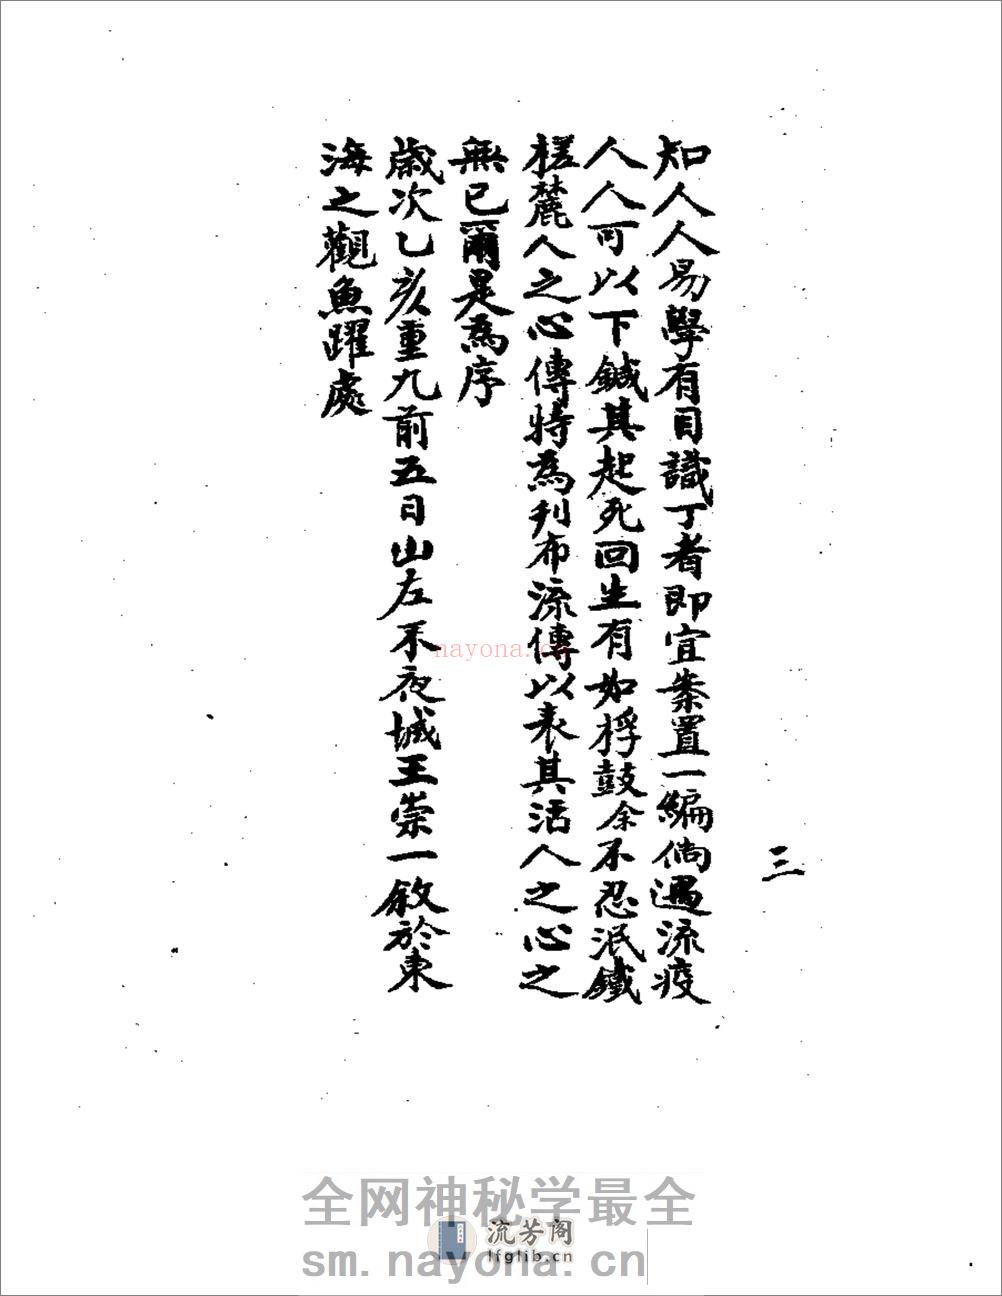 三
知人人易學有目識丁者即宜案置一編倘遇流疫
人人可以下鍼其起死回生有如桴鼓余不忍泯鐵
槎麓人之心傳特為刋布流傳以表其活人之心之
無已爾是為序
歲次乙亥重九前五日山左不夜城王崇一敘於東
海之觀魚躍處
nayona.cn
全网神秘学最全
流芳阁
lfglib.cn
sm.nayona.cn